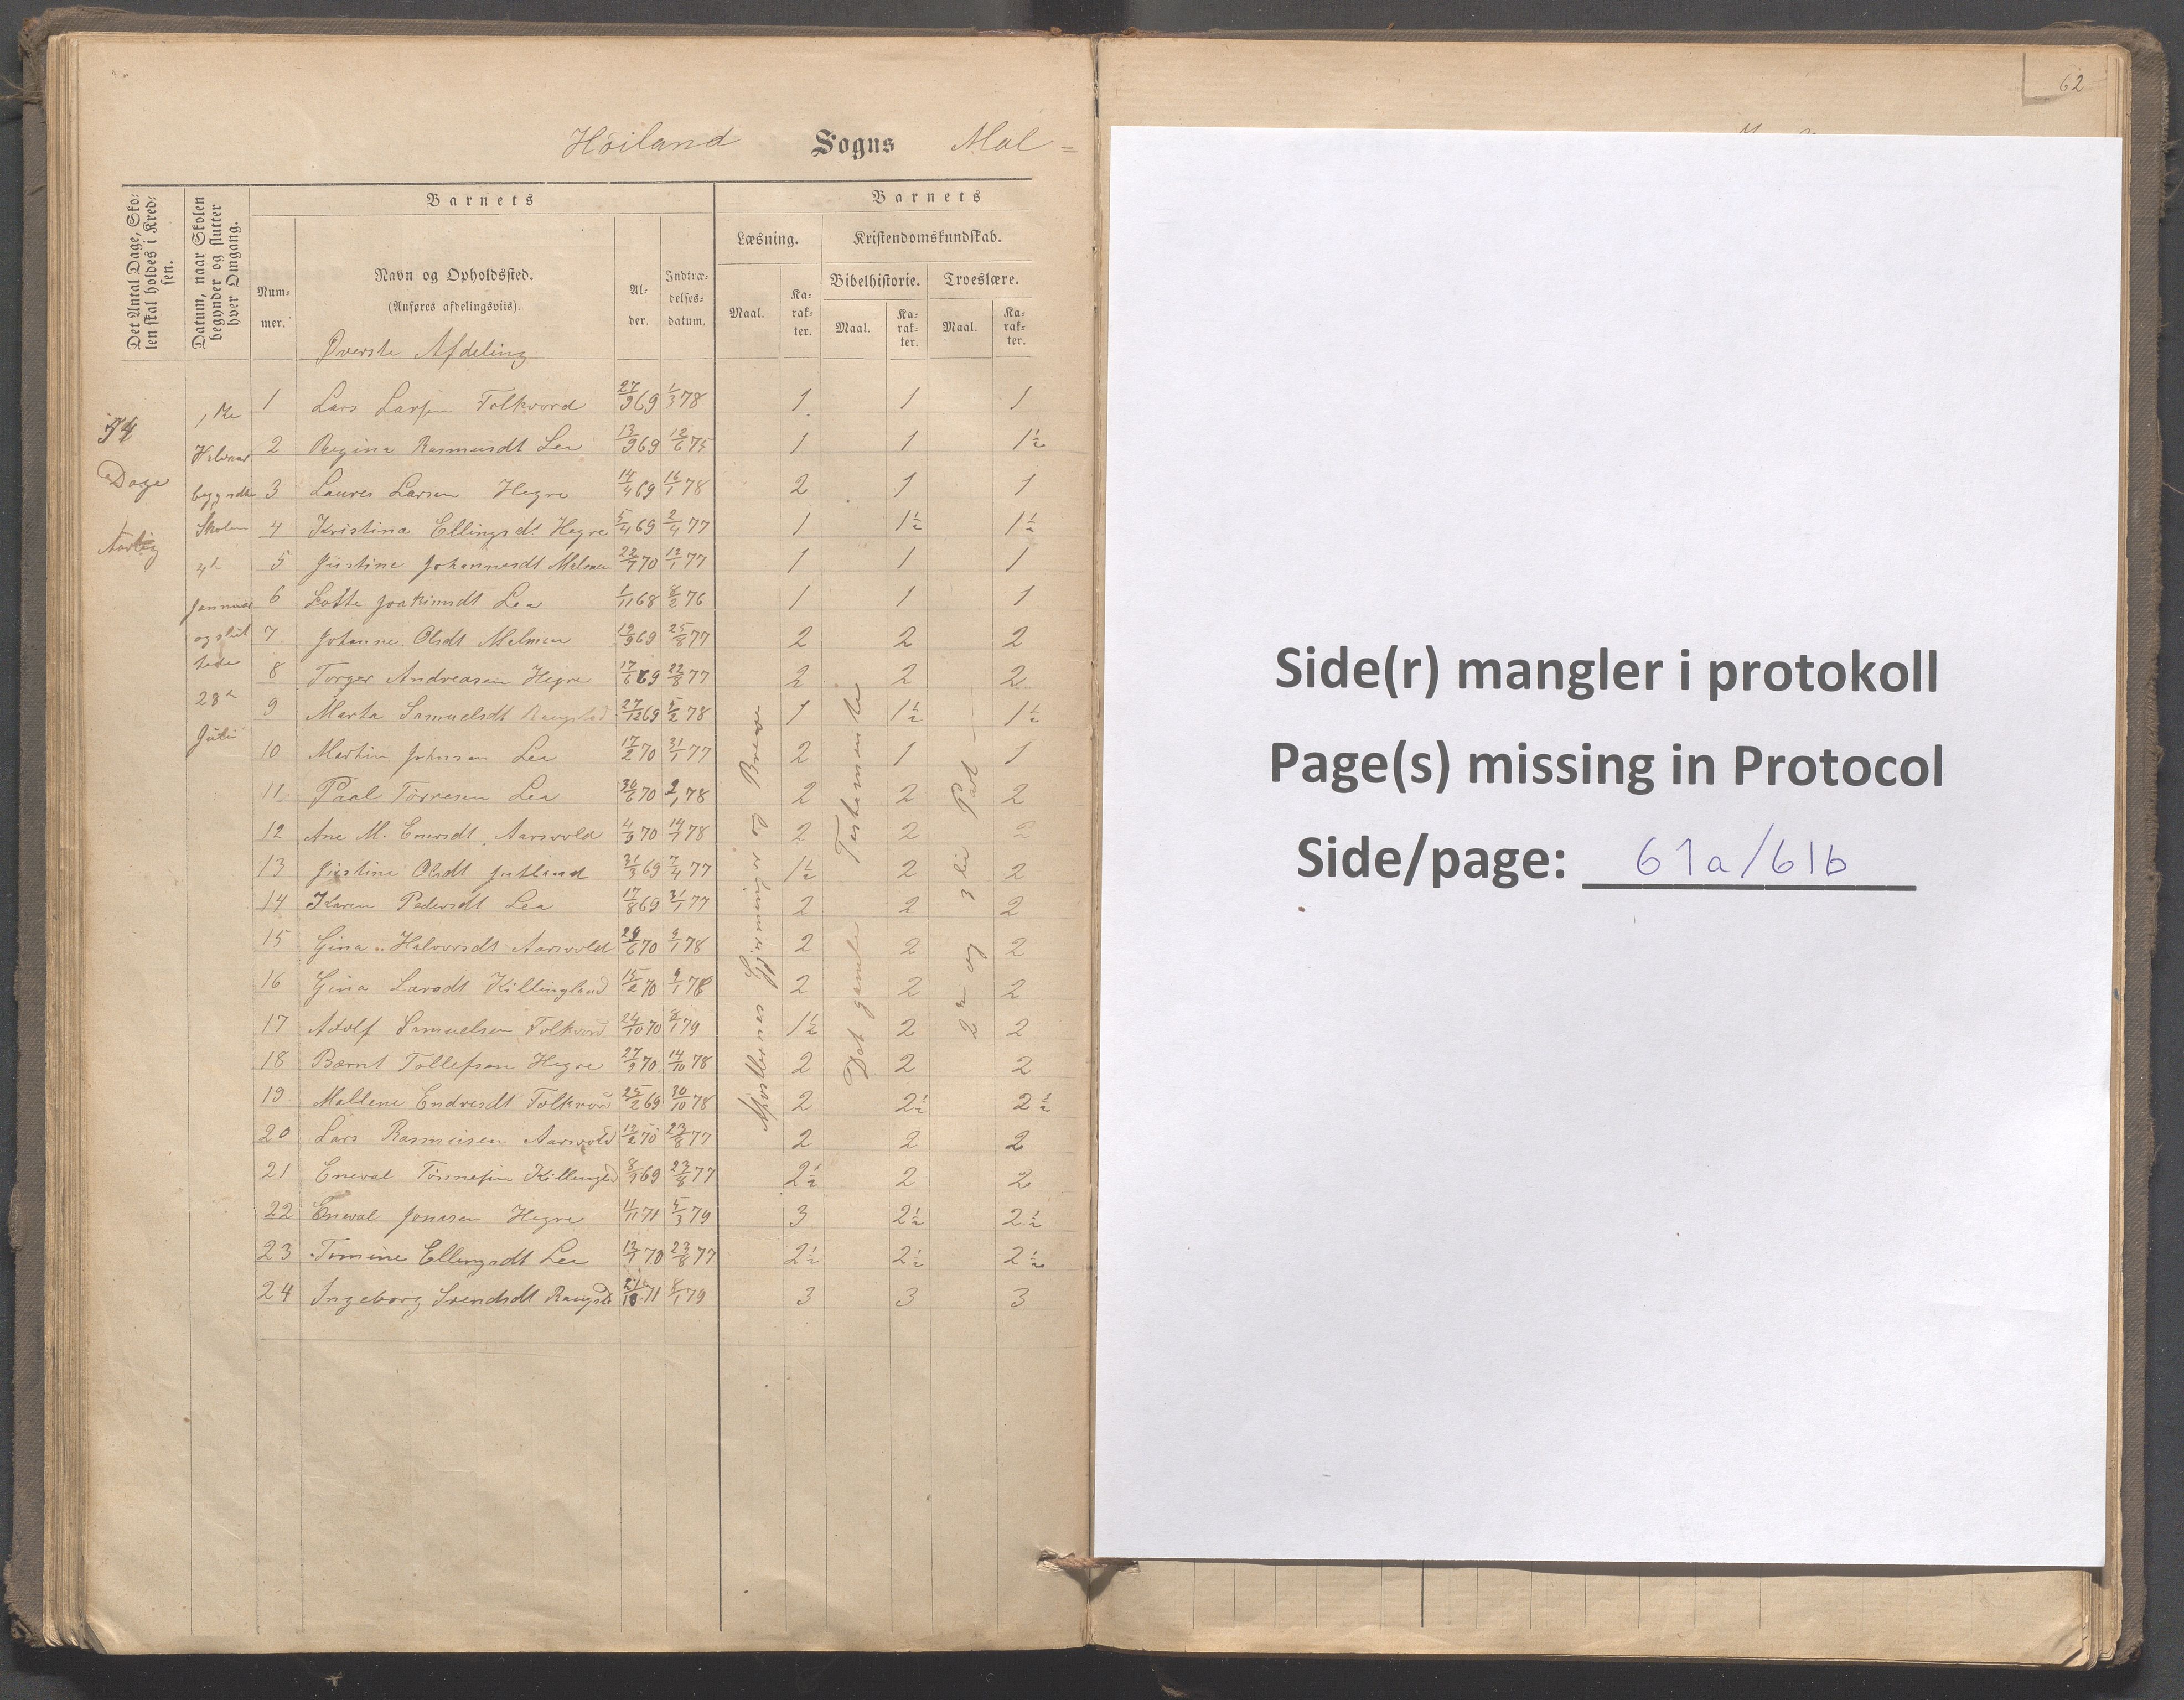 62
Höiland Sogns Mal=
Det Antal Dage, Sko-
len skal holdes i Kred-
sen.
Datum, naar Skolen
begynder og slutter
hver Omgang.
Barnets
Barnets
Num-
mer.
Navn og Opholdssted.
(Anføres afdelingsviis).
Al-
der.
Indtræ-
delses-
datum.
Læsning.
Kristendomskundskab.
Maal.
Ka-
rak-
ter.
Bibelhistorie.
Troeslære.
Maal.
Ka-
rak-
ter.
Maal.
Ka-
rak-
ter.
Øverste Afdeling
Dage
begyndte
Skolen
Januar
og slut
tede
28
Juli
1 Lars Larsen Folkvord 27/9 69 1/3 78 1 1 1
2 Regina Rasmusdt Lea 13/9 69 12/6 75 1 1 1½
3 Laures Larsen Hegre 14/4 69 16/1 78 2 1 1
4 Kristina Ellingsdt Hegre 5/4 69 2/4 77 1 1½ 1½
5 Justine Johannesdt Malmen 22/7 70 12/1 77 1 1 1
6 Lotte Joakimsdt Lea 1/11 68 8/2 76 1 1 1
7 Johanne Olsdt Malmen 19/9 69 25/8 77 2 2 2
8 Torger Andreasen Hegre 17/6 69 22/8 77 2 2 2
9 Marta Samuelsdt 27/12 69 5/2 78 1 1½ 1½
10 Martin Johnsen Lea 17/2 70 31/1 77 2 1 1
11 Paal Törresen Lea 30/6 70 78 2 2 2
12 Ane M. Enersdt Aarsvold 4/9 70 14/1 78 2 2 2
13 Justine Olsdt Jutland 31/3 69 7/4 77 1½ 2 2
14 Karen Pedersdt Lea 17/8 69 31/1 77 2 2 2
15 Gina Halvorsdt Aarsvold 29/6 70 9/1 78 2 2 2
16 Gina Larsdt Killingland 15/2 70 9/1 78 2 2 2
17 Adolf Samuelsen Folkvord 24/10 70 8/1 79 1½ 2 2
18 Bernt Tollefsen Hegre 27/9 70 14/10 78 2 2 2
19 Mallene Endresdt Folkvord 25/2 69 30/10 78 2 2½ 2½
20 Lars Rasmusen Aarsvold 12/2 70 23/8 77 2 2 2
21 Eneval Tönnesen Killingld 8/1 69 23/8 77 2½ 2 2
22 Eneval Jonasen Hegre 11/11 71 5/3 79 3 2½ 2½
23 Tomine Ellingsdt Lea 13/1 70 23/8 77 2½ 2½ 2½
24 Ingeborg Svendsdt 71 8/1 79 3 3 3
Det gamle Testamente
2 og 3die Part
Side(r) mangler i protokoll
Page(s) missing in Protocol
Side/page: 61a/61b